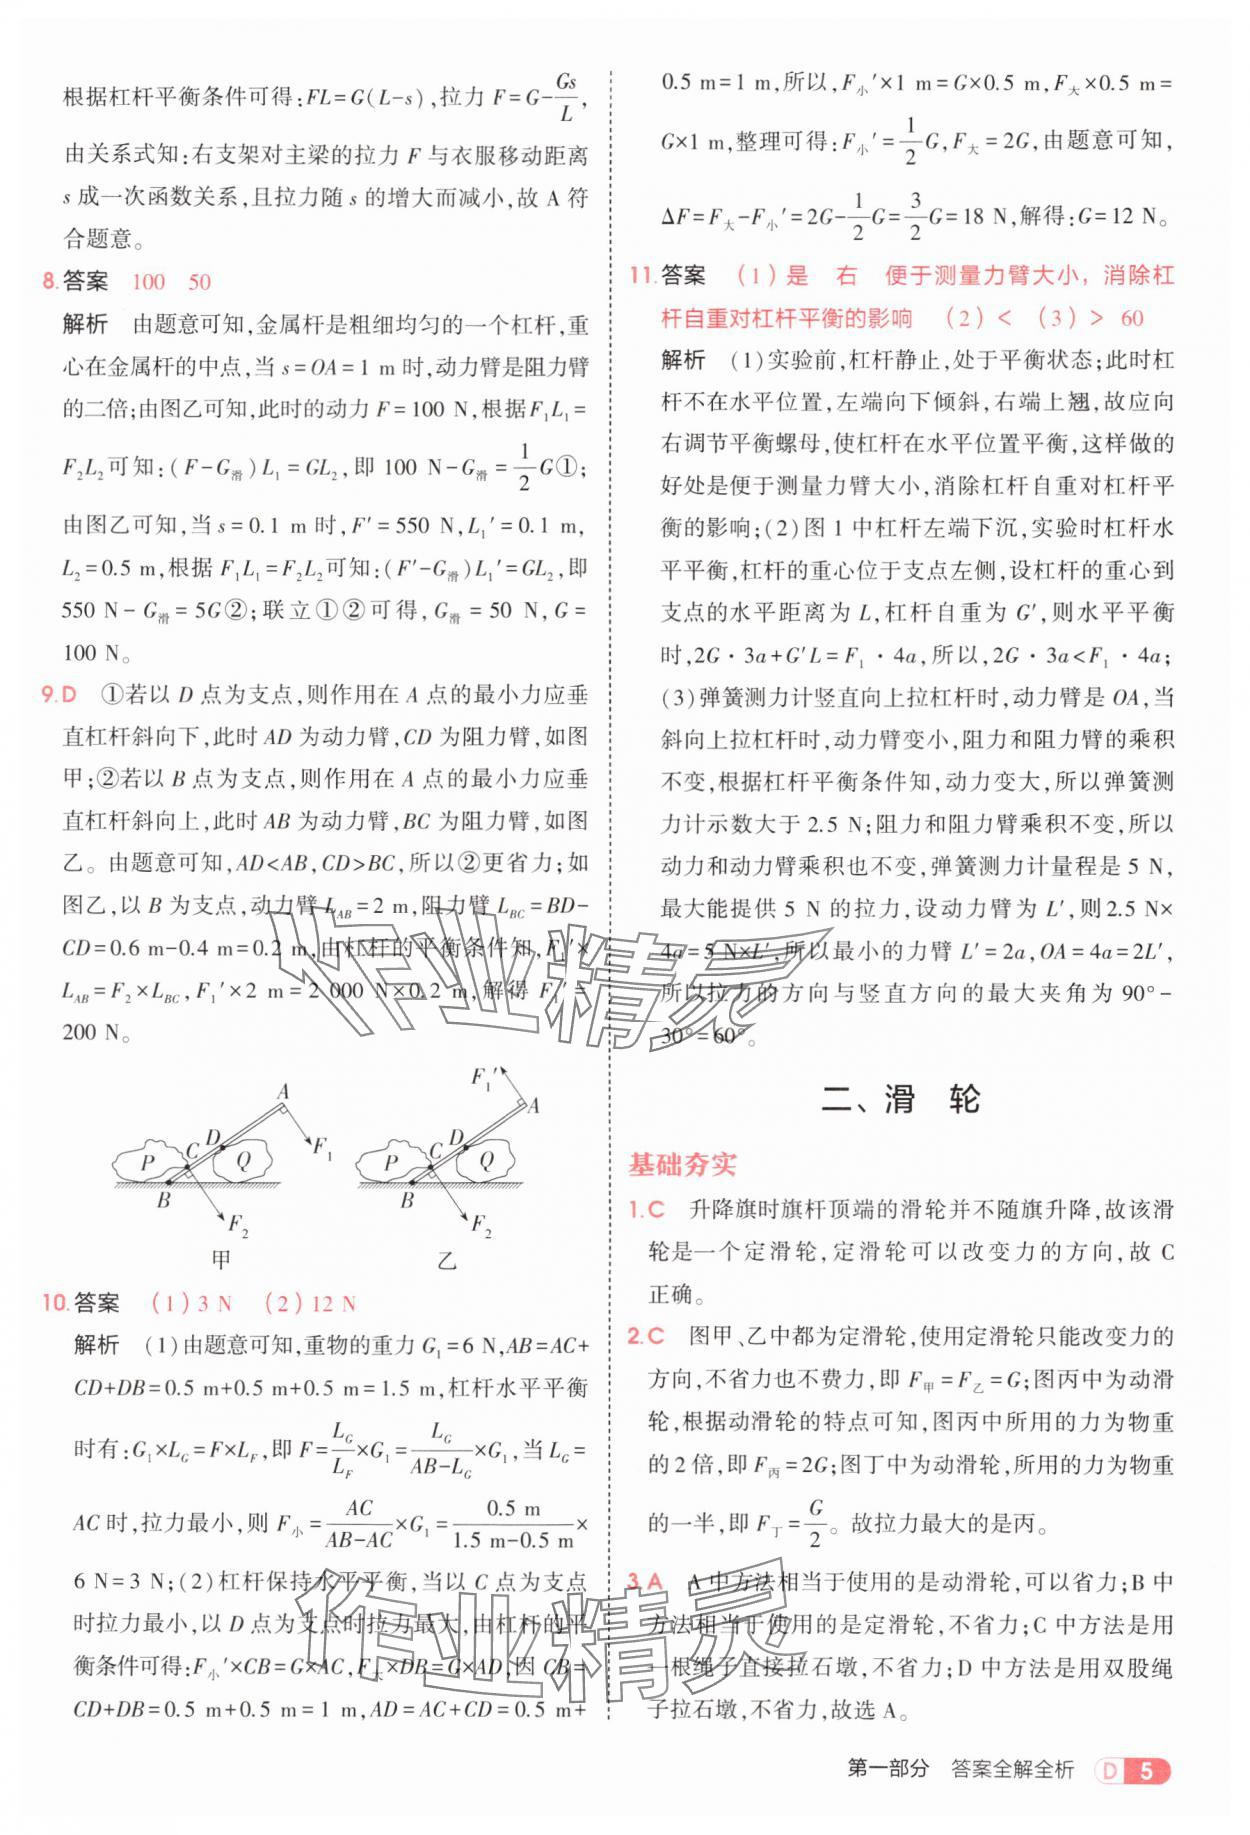 根据杠杆平衡条件可得:FL=G(L-s),拉力 F=G-Gs/L,
由关系式知:右支架对主梁的拉力 F 与衣服移动距离
s 成一次函数关系,且拉力随 s 的增大而减小,故 A 符
合题意。
8.答案 100 50
解析 由题意可知,金属杆是粗细均匀的一个杠杆,重
心在金属杆的中点,当 s=OA=1 m 时,动力臂是阻力臂
的二倍;由图乙可知,此时的动力 F=100 N,根据F₁L₁=
F₂L₂可知:(F-G滑)L₁=GL₂,即 100 N-G滑=1/2G①;
由图乙可知,当 s=0.1 m 时,F′=550 N,L₁′=0.1 m,
L₂=0.5 m,根据 F₁L₁=F₂L₂可知:(F′-G滑)L₁′=GL₂,即
550 N-G滑=5G②;联立①②可得,G滑=50 N,G=
100 N。
9.D ①若以 D 点为支点,则作用在 A 点的最小力应垂
直杠杆斜向下,此时 AD 为动力臂,CD 为阻力臂,如图
甲;②若以 B 点为支点,则作用在 A 点的最小力应垂
直杠杆斜向上,此时 AB 为动力臂,BC 为阻力臂,如图
乙。由题意可知,AD<AB,CD>BC,所以②更省力;如
图乙,以 B 为支点,动力臂 L_AB=2 m,阻力臂 L_BC=BD-
CD=0.6 m-0.4 m=0.2 m,由杠杆的平衡条件知,F₁′×
L_AB=F₂×L_BC,F₁′×2 m=2 000 N×0.2 m,解得 F₁′=
200 N。
A D C P Q B F₁ F₂ 甲
F₁′ A D C P Q B F₂ 乙
10.答案 (1)3 N (2)12 N
解析 (1)由题意可知,重物的重力 G₁=6 N,AB=AC+
CD+DB=0.5 m+0.5 m+0.5 m=1.5 m,杠杆水平平衡
时有:G₁×L_G=F×L_F,即 F=L_G/L_F×G₁=L_G/(AB-L_G)×G₁,当 L_G=
AC 时,拉力最小,则 F小=AC/(AB-AC)×G₁=0.5 m/(1.5 m-0.5 m)×
6 N=3 N;(2)杠杆保持水平平衡,当以 C 点为支点
时拉力最小,以 D 点为支点时拉力最大,由杠杆的平
衡条件可得:F小′×CB=G×AC,F大×DB=G×AD,因 CB=
CD+DB=0.5 m+0.5 m=1 m,AD=AC+CD=0.5 m+
0.5 m=1 m,所以,F小′×1 m=G×0.5 m,F大×0.5 m=
G×1 m,整理可得:F小′=1/2G,F大=2G,由题意可知,
ΔF=F大-F小′=2G-1/2G=3/2G=18 N,解得:G=12 N。
11.答案 (1)是 右 便于测量力臂大小,消除杠
杆自重对杠杆平衡的影响 (2)< (3)> 60
解析 (1)实验前,杠杆静止,处于平衡状态;此时杠
杆不在水平位置,左端向下倾斜,右端上翘,故应向
右调节平衡螺母,使杠杆在水平位置平衡,这样做的
好处是便于测量力臂大小,消除杠杆自重对杠杆平
衡的影响;(2)图 1 中杠杆左端下沉,实验时杠杆水
平平衡,杠杆的重心位于支点左侧,设杠杆的重心到
支点的水平距离为 L,杠杆自重为 G′,则水平平衡
时,2G·3a+G′L=F₁·4a,所以,2G·3a<F₁·4a;
(3)弹簧测力计竖直向上拉杠杆时,动力臂是 OA,当
斜向上拉杠杆时,动力臂变小,阻力和阻力臂的乘积
不变,根据杠杆平衡条件知,动力变大,所以弹簧测
力计示数大于 2.5 N;阻力和阻力臂乘积不变,所以
动力和动力臂乘积也不变,弹簧测力计量程是 5 N,
最大能提供 5 N 的拉力,设动力臂为 L′,则2.5 N×
4a=5 N×L′,所以最小的力臂 L′=2a,OA=4a=2L′,
所以拉力的方向与竖直方向的最大夹角为 90°-
30°=60°。
二、滑 轮
基础夯实
1.C 升降旗时旗杆顶端的滑轮并不随旗升降,故该滑
轮是一个定滑轮,定滑轮可以改变力的方向,故 C
正确。
2.C 图甲、乙中都为定滑轮,使用定滑轮只能改变力的
方向,不省力也不费力,即 F甲=F乙=G;图丙中为动滑
轮,根据动滑轮的特点可知,图丙中所用的力为物重
的 2 倍,即 F丙=2G;图丁中为动滑轮,所用的力为物重
的一半,即 F丁=G/2。故拉力最大的是丙。
3.A A 中方法相当于使用的是动滑轮,可以省力;B 中
方法相当于使用的是定滑轮,不省力;C 中方法是用
一根绳子直接拉石墩,不省力;D 中方法是用双股绳
子拉石墩,不省力,故选 A。
作业精灵
作业精灵
第一部分 答案全解全析 D 5